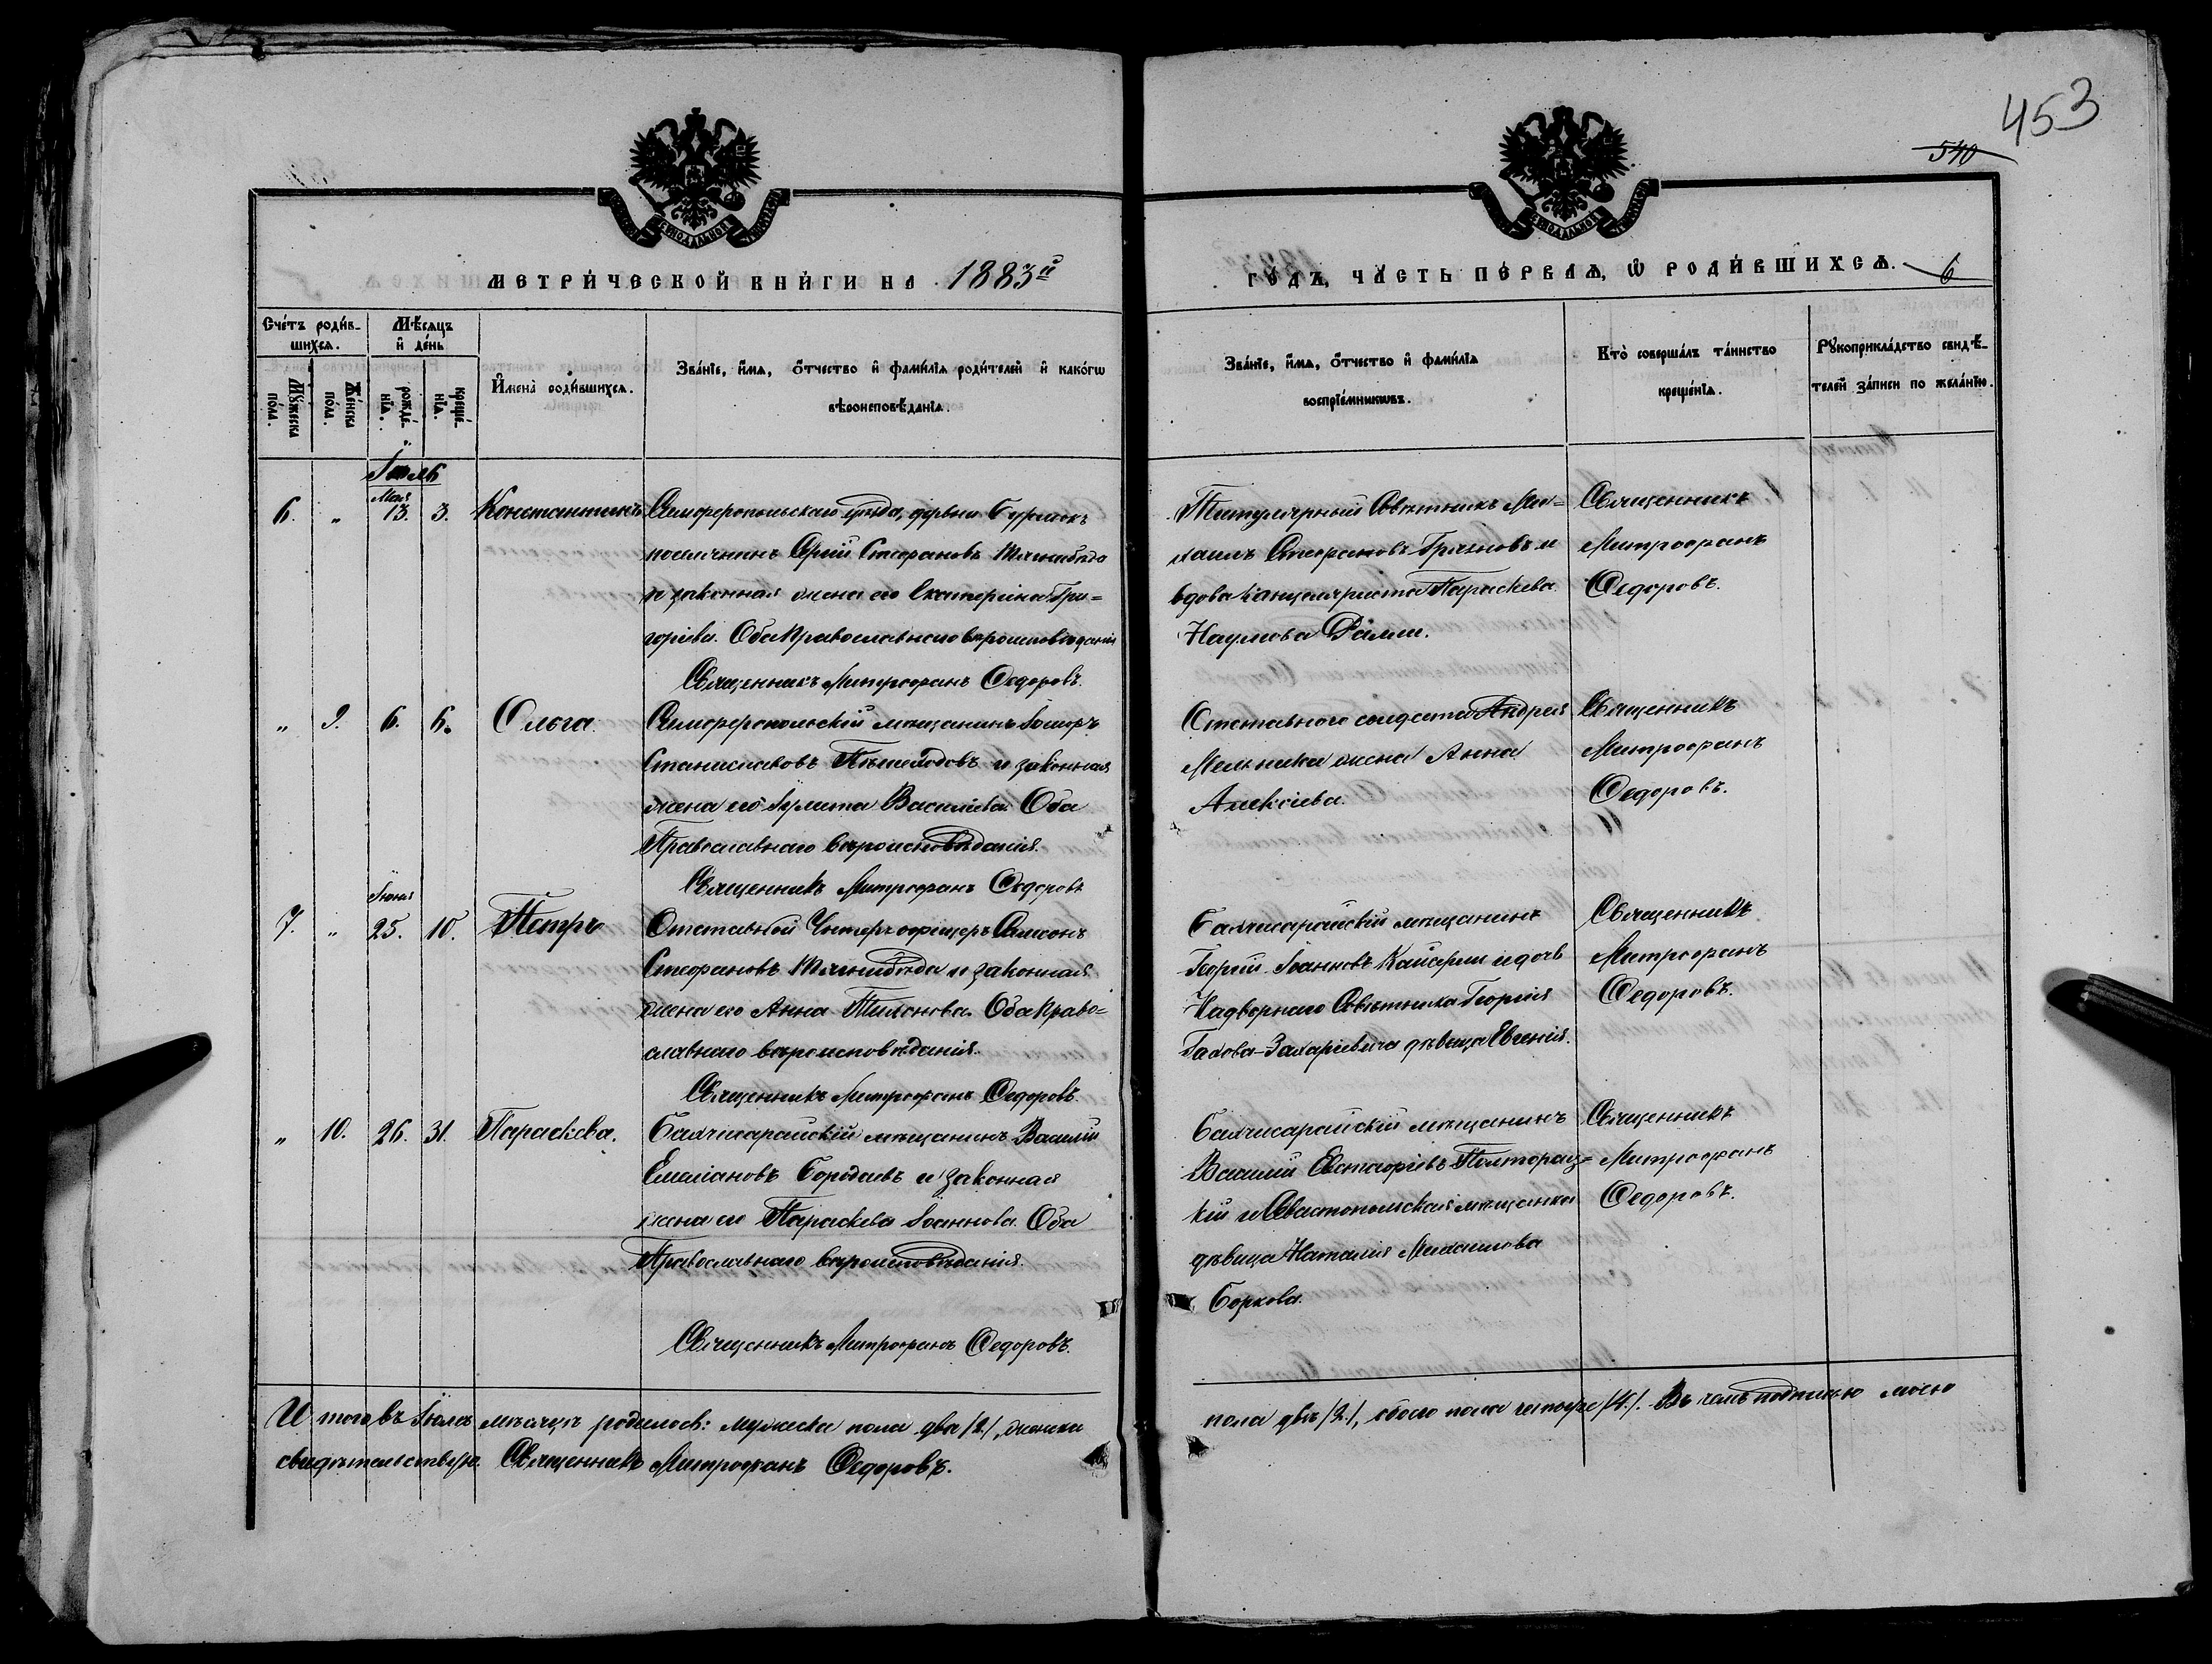 453
540
СѴНОДАЛЬНОЙ
СѴНОДАЛЬНОЙ
МЕТРИ́ЧЕСКОЙ КНИ́ГИ НА 1883й
ГО́ДЪ, ЧА́СТЬ ПЕ́РВАѦ, Ѡ РОДИ́ВШИХСѦ. 6
Сче́тъ роди́в-
шихся.
Мѣ́сяцъ
и де́нь
Мꙋ́жеска
по́ла.
Же́нска
по́ла.
рожде́-
нїѧ.
креще́-
нїѧ.
И҆мена̀ роди́вшихся.
Зва́нїе, и҆́мѧ, ѻ҆́тчество и҆ фами́лїѧ роди́телей и҆ како́гѡ
вѣроисповѣ́данїѧ.
Зва́нїе, и҆́мѧ, ѻ҆́тчество и҆ фами́лїѧ
воспрїе́мникѡвъ.
Кто̀ соверша́лъ та́инство
креще́нїѧ.
Рꙋкоприкла́дство свидѣ́-
телей за́писи по жела́нїю.
Іюль
Мая
6. " 13. 3. Константинъ
Симферопольскаго уѣзда, деревни
поселянинъ Стефановъ
и законная жена его Екатерина Гри=
горіева. Оба Православнаго вѣроисповѣданія
Священникъ Митрофанъ Ѳедоровъ.
Титулярный Совѣтникъ Ми=
хаилъ Стефановъ Грязновъ и
вдова Канцеляриста Параскева
Наумова
Священникъ
Митрофанъ
Ѳедоровъ.
" 9. 6. 6. Ольга.
Симферопольскій мѣщанинъ
Станиславовъ и законная
жена его Іулита Васильева. Оба
Православнаго вѣроисповѣданія.
Священникъ Митрофанъ Ѳедоровъ
Отставного солдата Андрея
Мельника жена Анна
Алексіева.
Священникъ
Митрофанъ
Ѳедоровъ.
Іюня
7. " 25. 10. Петръ
Отставной Унтеръ офицеръ
Стефановъ и законная
жена его Анна Тихонова. Оба Право=
славнаго вѣроисповѣданія.
Священникъ Митрофанъ Ѳедоровъ.
Бахчисарайскій мѣщанинъ
Георгій Іоанновъ и дочь
Надворнаго Совѣтника Георгія
Гахова-Захаріевича дѣвица Евгенія.
Священникъ
Митрофанъ
Ѳедоровъ.
" 10. 26. 31. Параскева.
Бахчисарайскій мѣщанинъ Василій
Емиліановъ Бородаевъ и законная
жена его Параскева Іоаннова. Оба
Православнаго вѣроисповѣданія.
Священникъ Митрофанъ Ѳедоровъ.
Бахчисарайскій мѣщанинъ
Василій Евстафіевъ Полторац=
кій и Севастопольская мѣщанка
дѣвица Наталія
Боркова.
Священникъ
Митрофанъ
Ѳедоровъ.
Итого въ Іюлѣ мѣсяцѣ родилось: мужеска пола два /2/, женска
пола двѣ /2/, обоего пола четыре /4/. Въ чемъ подписью моею
свидѣтельствую. Священникъ Митрофанъ Ѳедоровъ.